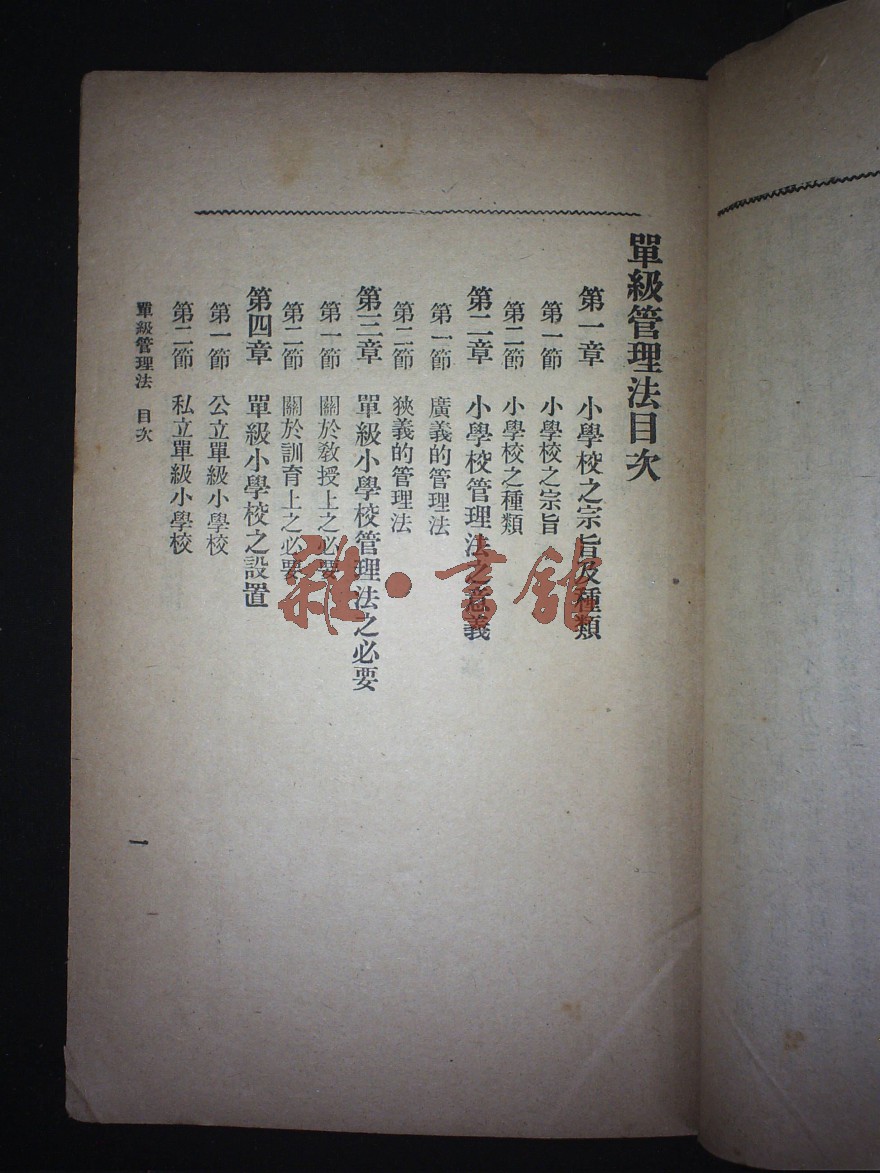 單級管理法目次
第一章 小學校之宗旨及種類
第一節 小學校之宗旨
第二節 小學校之種類
第二章 小學校管理法之意義
第一節 廣義的管理法
第二節 狹義的管理法
第三章 單級小學校管理法之必要
第一節 關於教授上之必要
第二節 關於訓育上之必要
第四章 單級小學校之設置
第一節 公立單級小學校
第二節 私立單級小學校
單級管理法 目次
一
雜·書館